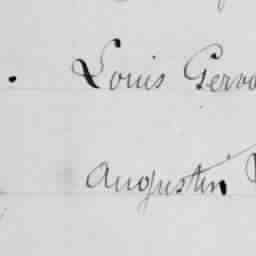 Louis Gerva
Augustin